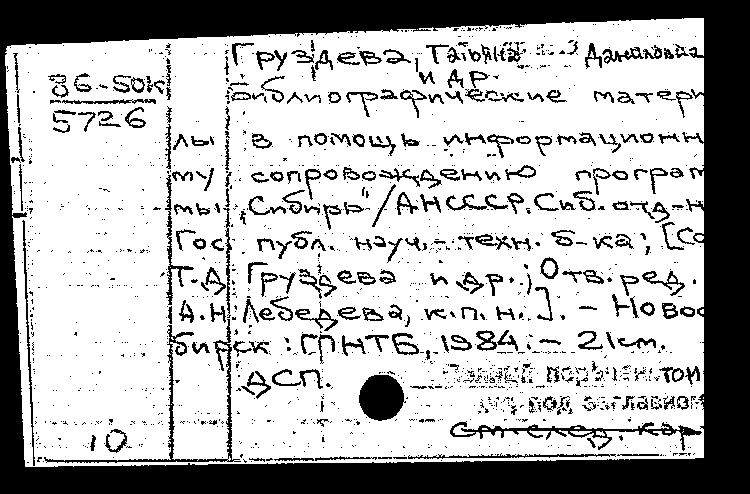 86-50к
5726
Груздева, Татьяна Даниловна
и др.
Библиографические матери
лы в помощь информационн
му сопровождению програм
мы „Сибирь"/АН СССР. Сиб. отд-н
Гос. публ. науч.-техн. б-ка; [Со
Т.Д. Груздева и др.; Отв. ред.
А.Н. Лебедева, к.п.н.]. – Новос
бирск: ГПНТБ, 1984. – 21 см.
ДСП.
под заглавием
См. след. кар
10